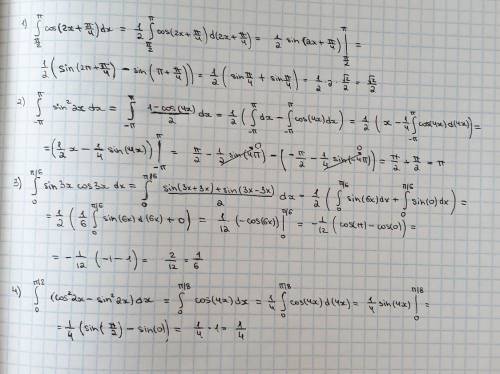 1) ∫_{π/2}^{π} cos(2x + π/4) dx = 1/2 ∫_{π/2}^{π} cos(2x + π/4) d(2x + π/4) = 1/2 sin(2x + π/4) |_{π/2}^{π} =
1/2 (sin(2π + π/4) - sin(π + π/4)) = 1/2 (sin π/4 + sin π/4) = 1/2 · 2 · √2/2 = √2/2
2) ∫_{-π}^{π} sin²2x dx = ∫_{-π}^{π} (1-cos(4x))/2 dx = 1/2 (∫_{-π}^{π} dx - ∫_{-π}^{π} cos(4x) dx) = 1/2 (x - 1/4 ∫_{-π}^{π} cos(4x) d(4x)) =
= (1/2 x - 1/4 sin(4x)) |_{-π}^{π} = π/2 - 1/2 sin(4π) 0 - (-π/2 - 1/4 sin(-4π) 0) = π/2 + π/2 = π
3) ∫_{0}^{π/6} sin3x cos3x dx = ∫_{0}^{π/6} (sin(3x+3x) + sin(3x-3x))/2 dx = 1/2 (∫_{0}^{π/6} sin(6x) dx + ∫_{0}^{π/6} sin(0) dx) =
= 1/2 (1/6 ∫_{0}^{π/6} sin(6x) d(6x) + 0) = 1/12 (-cos(6x)) |_{0}^{π/6} = -1/12 (cos(π) - cos(0)) =
= -1/12 (-1-1) = 2/12 = 1/6
4) ∫_{0}^{π/8} (cos²2x - sin²2x) dx = ∫_{0}^{π/8} cos(4x) dx = 1/4 ∫_{0}^{π/8} cos(4x) d(4x) = 1/4 sin(4x) |_{0}^{π/8} =
= 1/4 (sin(π/2) - sin(0)) = 1/4 · 1 = 1/4